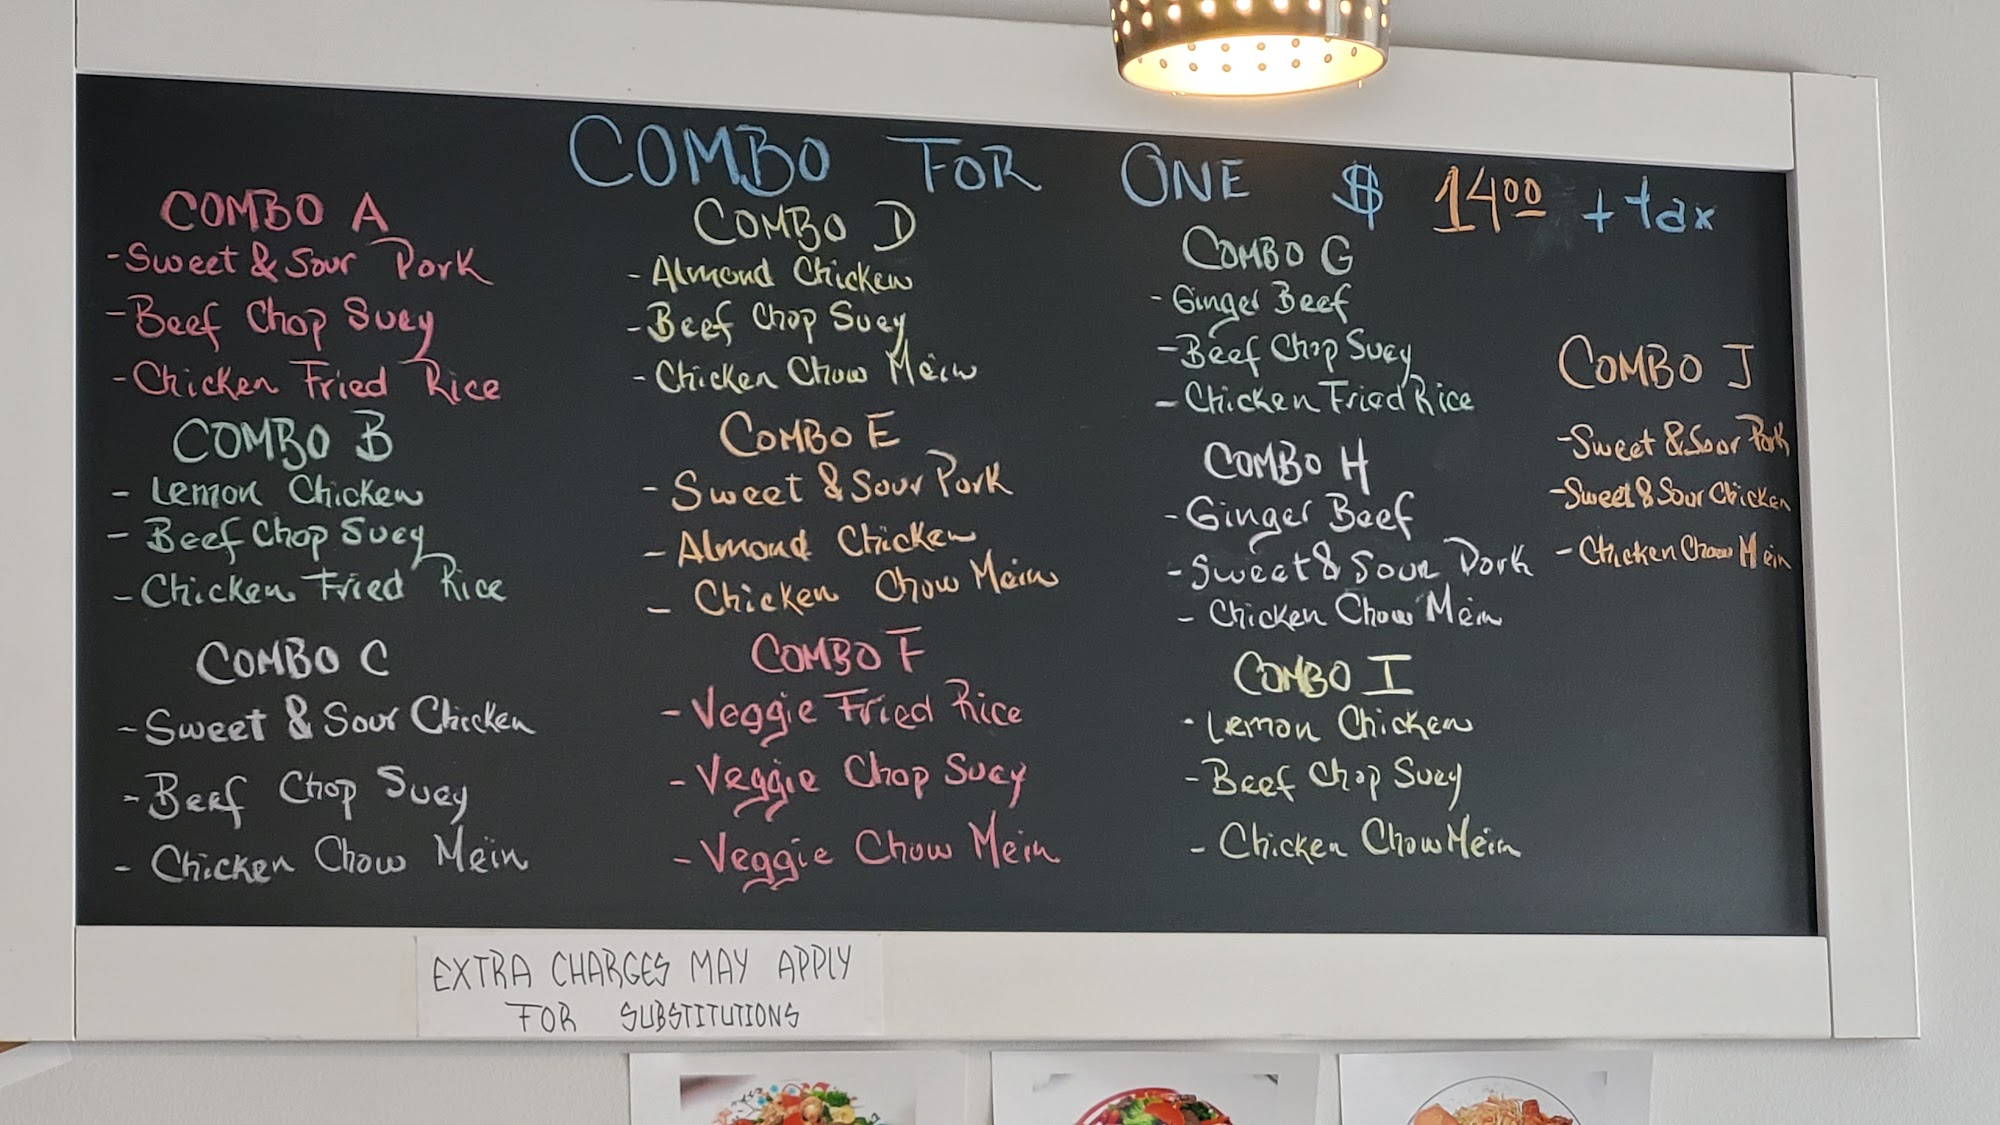 COMBO FOR ONE $ 14.00 + tax
COMBO A
- Sweet & Sour Pork
- Beef Chop Suey
- Chicken Fried Rice
COMBO B
- Lemon Chicken
- Beef Chop Suey
- Chicken Fried Rice
COMBO C
- Sweet & Sour Chicken
- Beef Chop Suey
- Chicken Chow Mein
COMBO D
- Almond Chicken
- Beef Chop Suey
- Chicken Chow Mein
COMBO E
- Sweet & Sour Pork
- Almond Chicken
- Chicken Chow Mein
COMBO F
- Veggie Fried Rice
- Veggie Chop Suey
- Veggie Chow Mein
COMBO G
- Ginger Beef
- Beef Chop Suey
- Chicken Fried Rice
COMBO H
- Ginger Beef
- Sweet & Sour Pork
- Chicken Chow Mein
COMBO I
- Lemon Chicken
- Beef Chop Suey
- Chicken Chow Mein
COMBO J
- Sweet & Sour Pork
- Sweet & Sour Chicken
- Chicken Chow Mein
EXTRA CHARGES MAY APPLY
FOR SUBSTITUTIONS